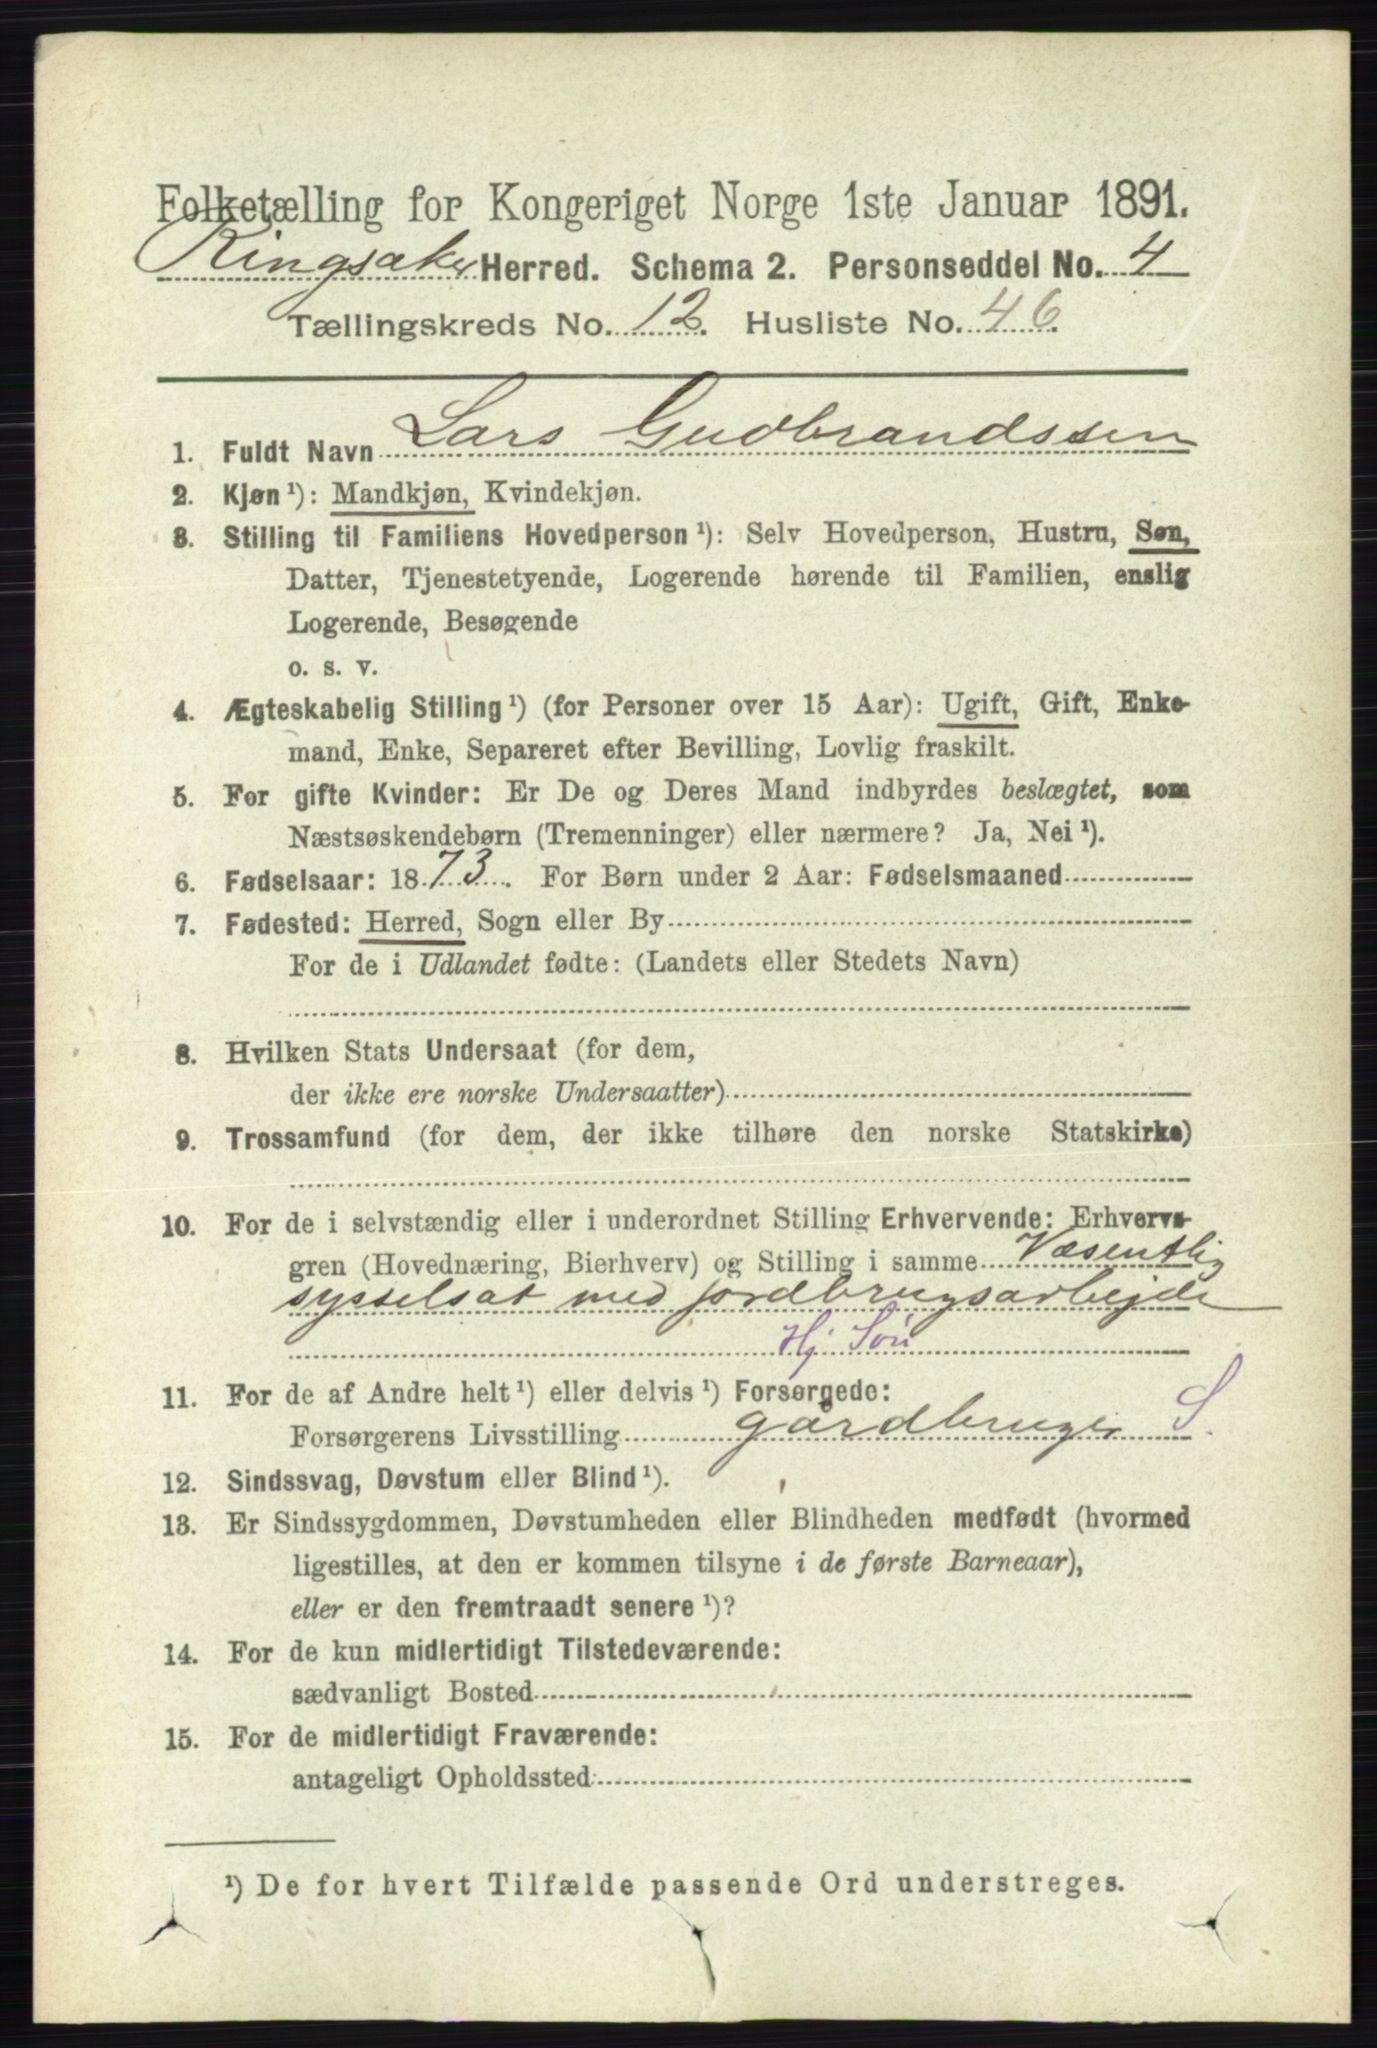 Folketælling for Kongeriget Norge 1ste Januar 1891.
Ringsaker Herred. Schema 2. Personseddel No. 4
Tællingskreds No. 12. Husliste No. 46.
1. Fuldt Navn Lars Gudbrandssen
2. Kjøn¹): Mandkjøn, Kvindekjøn.
3. Stilling til Familiens Hovedperson¹): Selv Hovedperson, Hustru, Søn,
Datter, Tjenestetyende, Logerende hørende til Familien, enslig
Logerende, Besøgende
o. s. v.
4. Ægteskabelig Stilling¹) (for Personer over 15 Aar): Ugift, Gift, Enke-
mand, Enke, Separeret efter Bevilling, Lovlig fraskilt.
5. For gifte Kvinder: Er De og Deres Mand indbyrdes beslægtet, som
Næstsøskendebørn (Tremenninger) eller nærmere? Ja, Nei¹).
6. Fødselsaar: 1873. For Børn under 2 Aar: Fødselsmaaned
7. Fødested: Herred, Sogn eller By
For de i Udlandet fødte: (Landets eller Stedets Navn)
8. Hvilken Stats Undersaat (for dem,
der ikke ere norske Undersaatter)
9. Trossamfund (for dem, der ikke tilhøre den norske Statskirke)
10. For de i selvstændig eller i underordnet Stilling Erhvervende: Erhvervs-
gren (Hovednæring, Bierhverv) og Stilling i samme Væsentlig
sysselsat med jordbrugsarbejde
Hj Søn
11. For de af Andre helt¹) eller delvis¹) Forsørgede:
Forsørgerens Livsstilling gårdbruger S.
12. Sindssvag, Døvstum eller Blind¹).
13. Er Sindssygdommen, Døvstumheden eller Blindheden medfødt (hvormed
ligestilles, at den er kommen tilsyne i de første Barneaar),
eller er den fremtraadt senere¹)?
14. For de kun midlertidigt Tilstedeværende:
sædvanligt Bosted
15. For de midlertidigt Fraværende:
antageligt Opholdssted
¹) De for hvert Tilfælde passende Ord understreges.